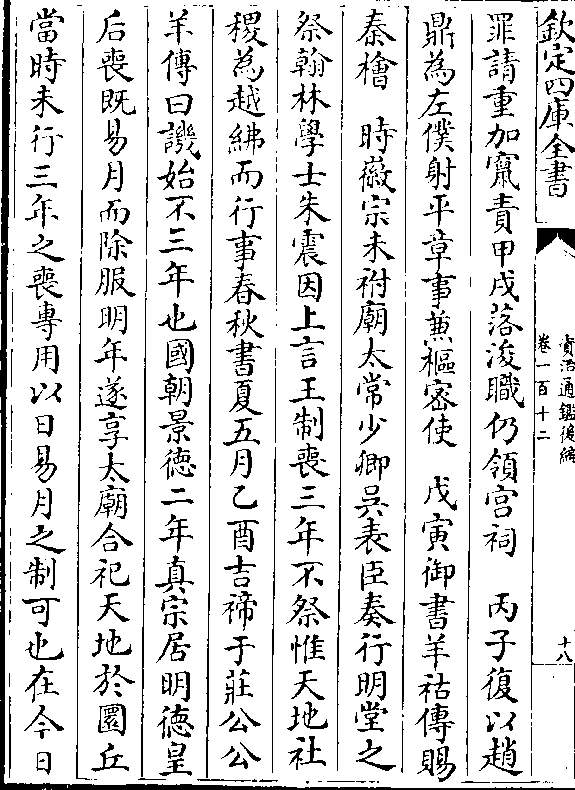 欽定四庫全書
資治通鑑後編
卷一百十二
十八
罪請重加竄責甲戌落浚職仍領宫祠　丙子復以趙
鼎為左僕射平章事兼樞密使　戊寅御書羊祜傳賜
秦檜　時徽宗未祔廟太常少卿吳表臣奏行明堂之
祭翰林學士朱震因上言王制喪三年不祭惟天地社
稷為越紼而行事春秋書夏五月乙酉吉禘于莊公公
羊傳曰譏始不三年也國朝景德二年真宗居明德皇
后喪既易月而除服明年遂享太廟合祀天地於圜丘
當時未行三年之喪專用以日易月之制可也在今日